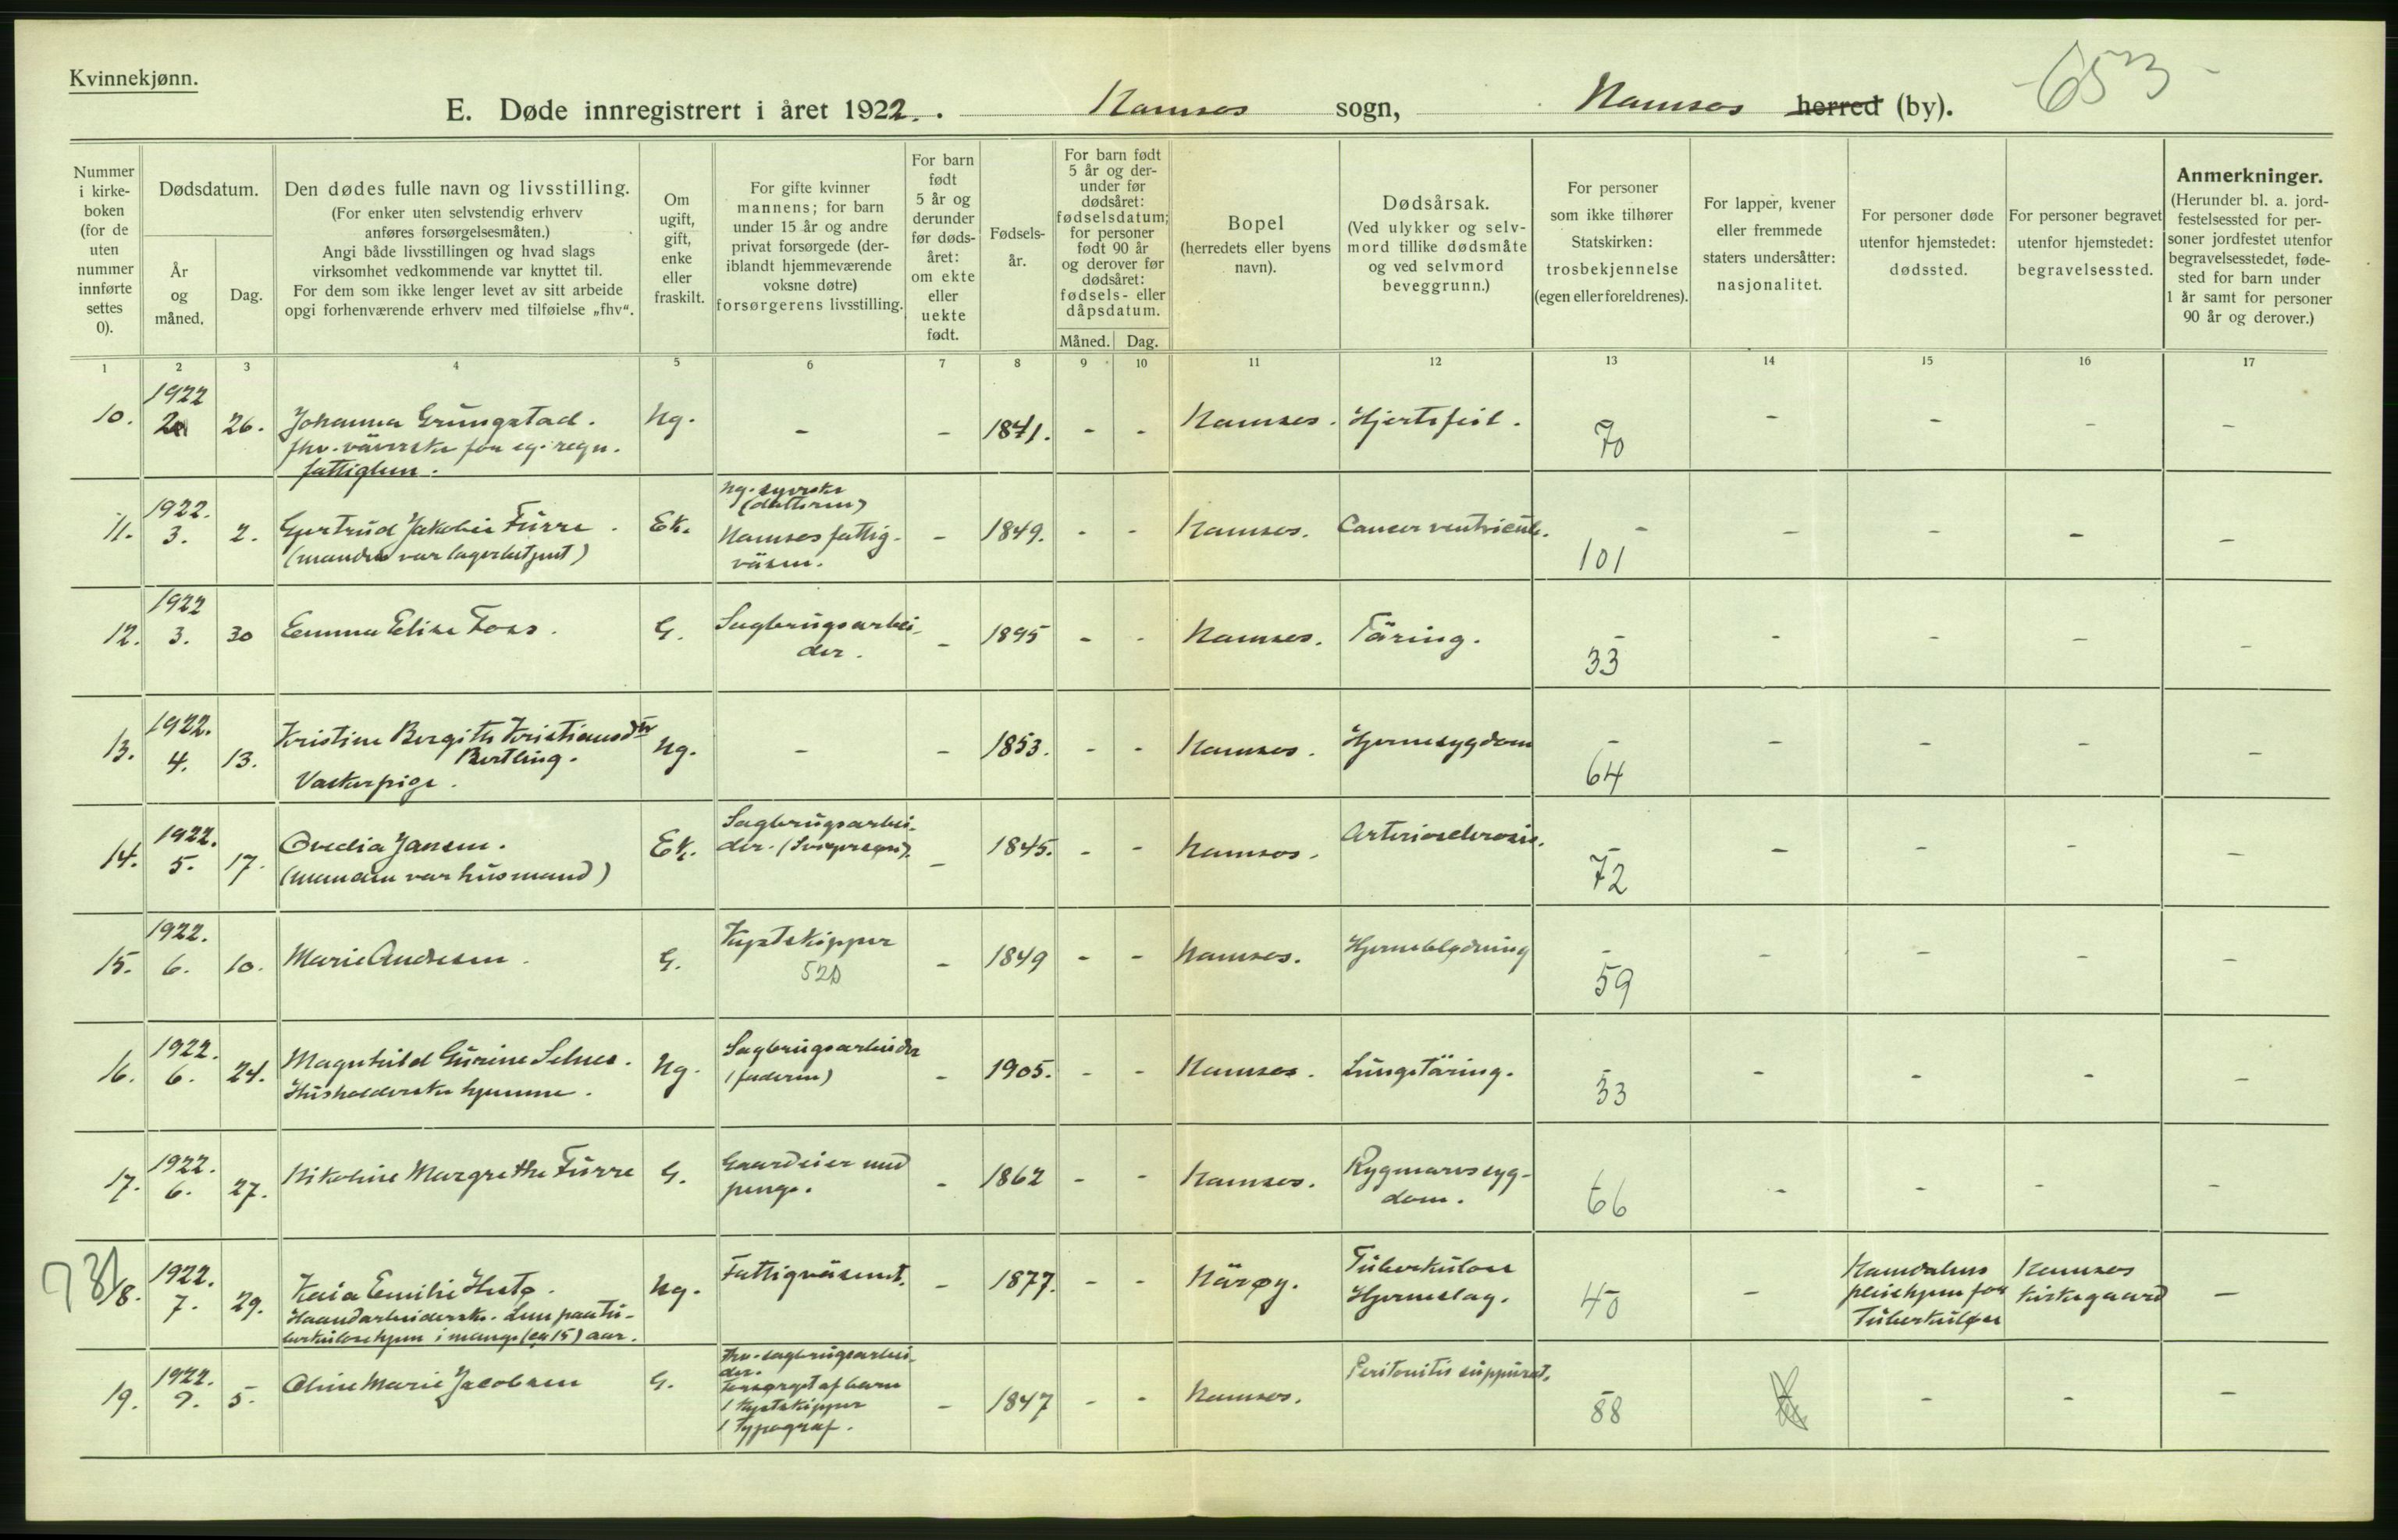 Kvinnekjønn.
E. Døde innregistrert i året 1922. Namsos sogn, Namsos herred (by). -653-
Nummer i kirke-boken (for de uten nummer innførte settes 0).
Dødsdatum.
År og måned.
Dag.
Den dødes fulle navn og livsstilling.
(For enker uten selvstendig erhverv anføres forsørgelsesmåten.)
Angi både livsstillingen og hvad slags virksomhet vedkommende var knyttet til.
For dem som ikke lenger levet av sitt arbeide opgi forhenværende erhverv med tilføielse „fhv“.
Om ugift, gift, enke eller fraskilt.
For gifte kvinner mannens; for barn under 15 år og andre privat forsørgede (der-iblandt hjemmeværende voksne døtre) forsørgerens livsstilling.
For barn født 5 år og derunder før døds-året: om ekte eller uekte født.
Fødsels-år.
For barn født 5 år og der-under før dødsåret: fødselsdatum; for personer født 90 år og derover før dødsåret: fødsels- eller dåpsdatum.
Måned.
Dag.
Bopel (herredets eller byens navn).
Dødsårsak.
(Ved ulykker og selv-mord tillike dødsmåte og ved selvmord beveggrunn.)
For personer som ikke tilhører Statskirken: trosbekjennelse (egen eller foreldrenes).
For lapper, kvener eller fremmede staters undersåtter: nasjonalitet.
For personer døde utenfor hjemstedet: dødssted.
For personer begravet utenfor hjemstedet: begravelsessted.
Anmerkninger.
(Herunder bl. a. jord-festelsessted for per-soner jordfestet utenfor begravelsesstedet, føde-sted for barn under 1 år samt for personer 90 år og derover.)
1 2 3 4 5 6 7 8 9 10 11 12 13 14 15 16 17
10. 1922 2 26. Johanna Grüngstad. Ug. - - 1841. - - Namsos. Hjertefeil. 70 - - - -
fhv. väverske for eg. regn.
fattiglem.
11. 1922. 3. 2. Gjertrud Jakobie Fürre. Ek. Ug. syerske (datteren) - 1849. - - Namsos. Cancer ventricul. - 101 - - - -
(manden var lagerbetjent) Namsos fattig-
väsen.
12. 1922 3. 30 Emma Elise Foss. G. Sagbrügsarbei-
der. - 1895 - - Namsos. Täring. - 33 - - - -
13. 1922. 4. 13. Kristine Bergitte Kristiansdtr Ug. - - 1853. - - Namsos. Hjernesygdom - 64 - - - -
Bertling.
Vaskerpige.
14. 1922. 5. 17. Ovedia Jansen. Ek. Sagbrügsarbei-
der. (Svigersøn). - 1845. - - Namsos. Arteriosclerosis. - 72 - - - -
(manden var hüsmand)
15. 1922. 6. 10. Marie Andresen. G. Kystskipper - 1849 - - Namsos. Hjerneblødning - 59 - - - -
52
16. 1922. 6. 24. Magnhild Gürine Selnes. Ug. Sagbrügsarbeider - 1905. - - Namsos. Lüngetäring. - 33 - - - -
Hüsholderske hjemme. (faderen)
17. 1922. 6. 27. Nikoline Margrethe Fürre G. Gaardeier med
penge. - 1862 - - Namsos. Rygmarvssyg-
dom. - 66 - - - -
18. 1922. 7. 29. Kaia Emilie Hustø. Ug. Fattigväsenet. - 1877. - - Närøy. Tüberküløse
Hjerneslag. 40 - Namdalens
pleiehjem for
Tüberküløse Namsos
kirkegaard -
Haandarbeiderske. Lem paa tü-
berkülosehjem i mange (ca 15) aar.
19. 1922. 9. 5. Oline Marie Jacobsen G. fhv. sagbrügsarbei-
der.
Forsørget af barn
1 Kystskipper
1 Typograf. - 1847 - - Namsos. Peritonitis süppürat. - 88 - - -